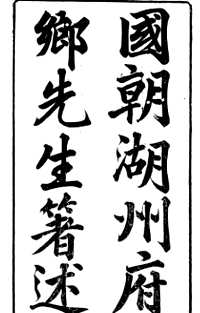 國朝湖州府
鄉先生箸述